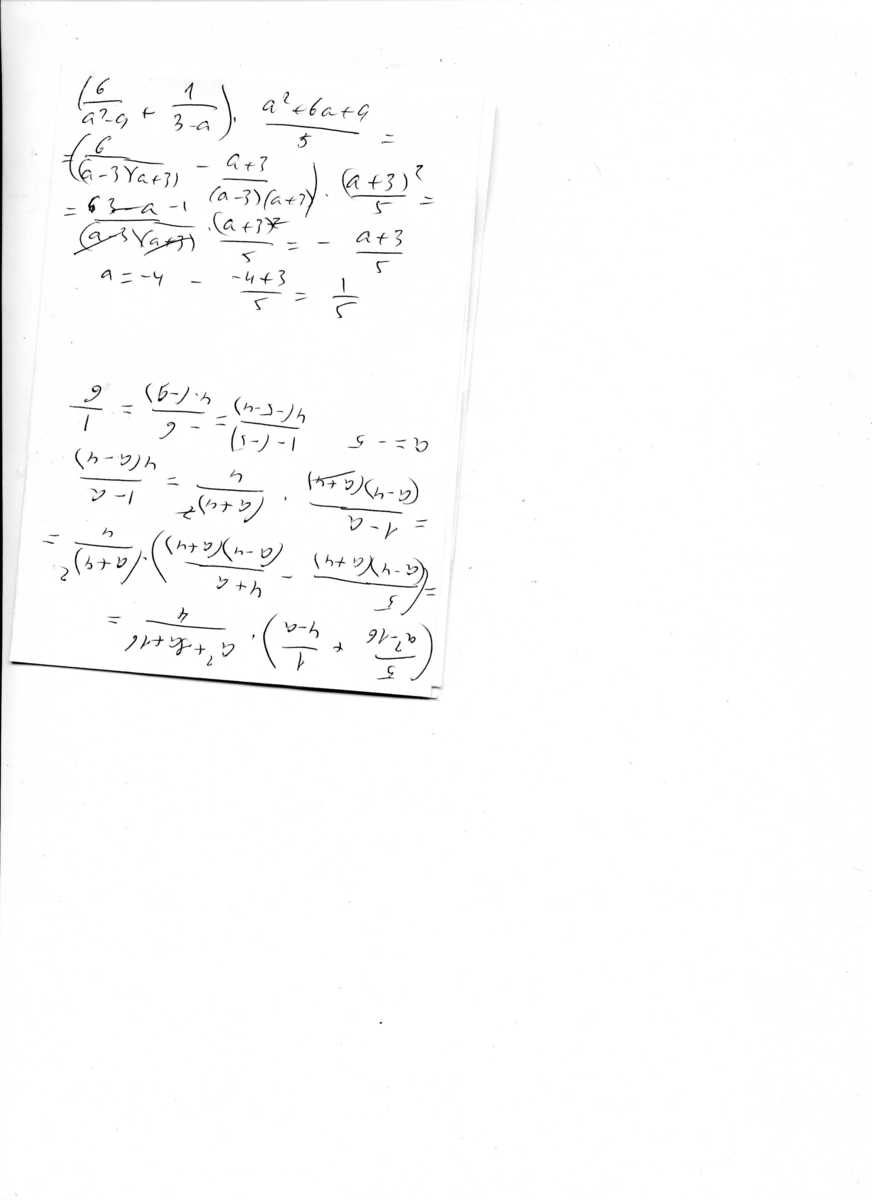 (6/(a²-9) + 1/(3-a)) · (a²+6a+9)/5 =
= (6/((a-3)(a+3)) - (a+3)/((a-3)(a+3))) · (a+3)²/5 =
= (6 3-a -1)/((a-3)(a+3)) · (a+3)²/5 = - (a+3)/5
a = -4 - (-4+3)/5 = 1/5
(5/(a²-16) + 1/(4-a)) · (a²+8a+16)/4 =
= (5/((a-4)(a+4)) - (4+a)/((a-4)(a+4))) · (a+4)²/4 =
= (1-a)/((a-4)(a+4)) · (a+4)²/4 = (1-a)/(4(a-4))
a = -5 (1-(-5))/(4(-5-4)) = - 6/(4·(-9)) = 1/6